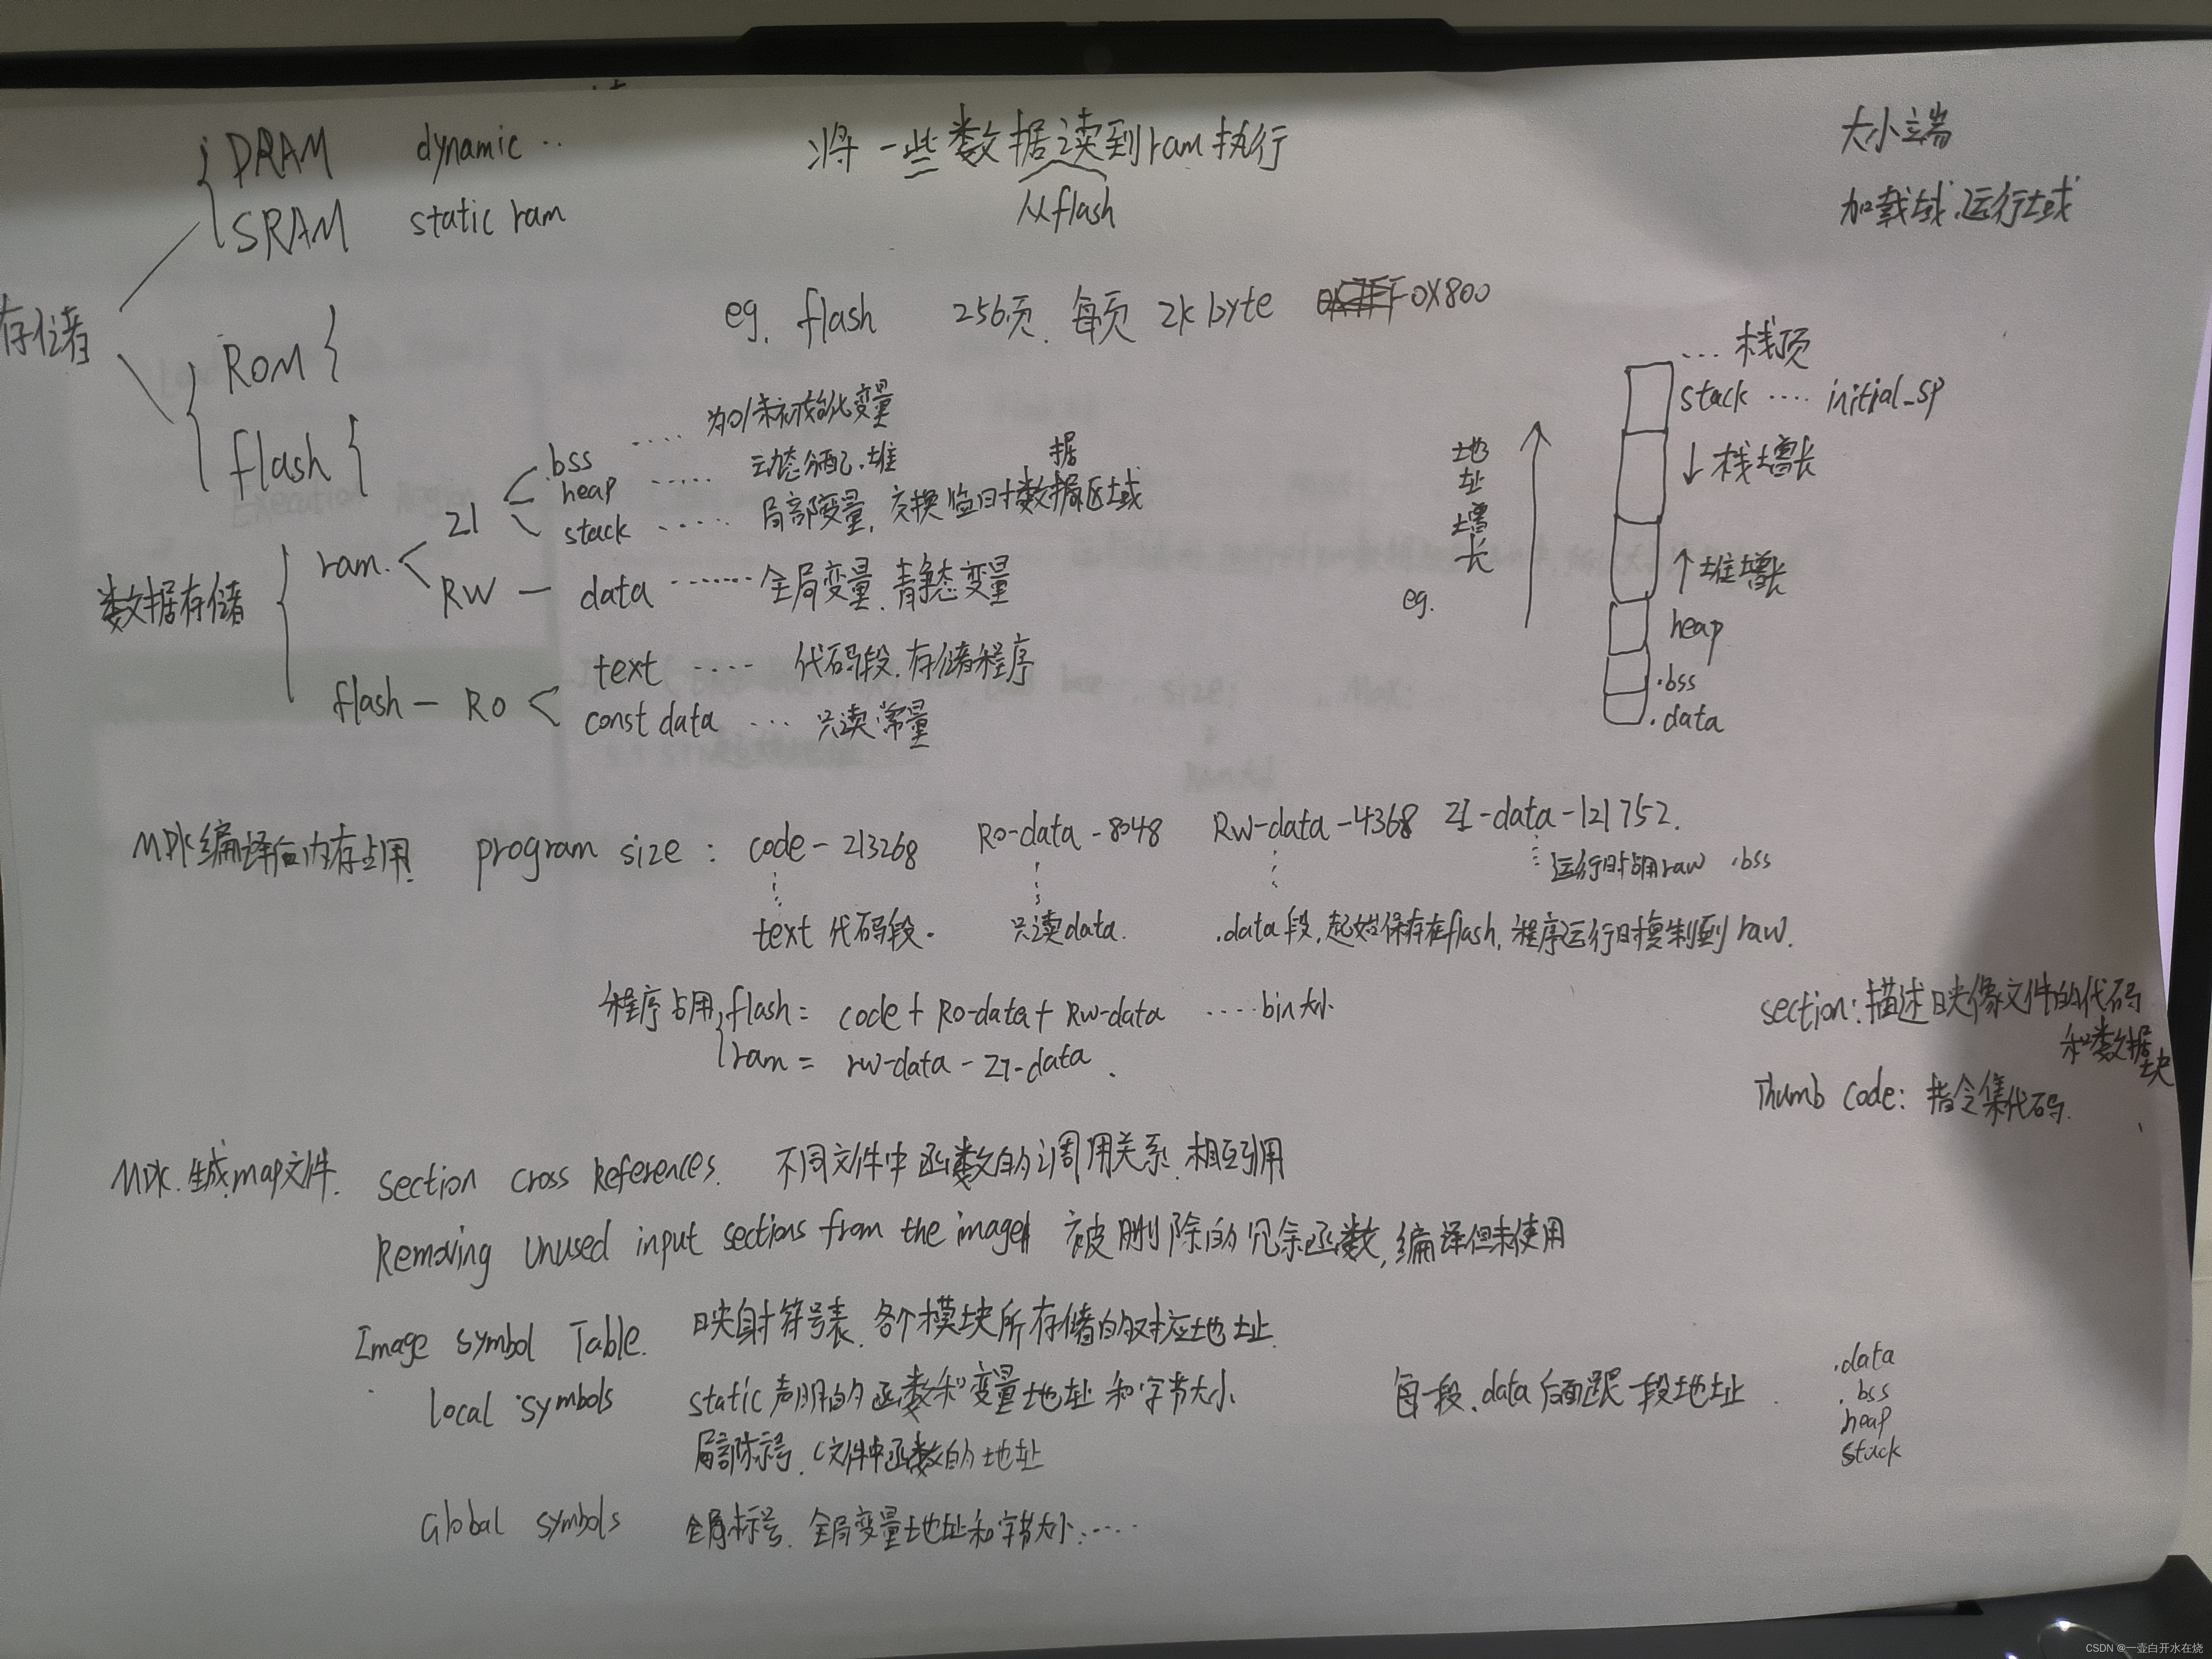 DRAM dynamic ..
SRAM static ram
将一些数据读到ram执行
从flash
大小端
加载域、运行域
存储
ROM
flash
eg. flash 256页. 每页 2k byte 0X800
数据存储
ram.
ZI
.bss .... 为0/未初始化变量
heap ..... 动态分配、堆
据
stack ..... 局部变量, 交换临时数据区域
RW — data ....... 全局变量、静态变量
flash — RO
text ..... 代码段、存储程序
const data ... 只读常量
地址增长
eg.
... 栈顶
stack .... initial_sp
↓栈增长
↑堆增长
heap
.bss
.data
MDK编译后内存占用. program size : code-213268 Ro-data-8048 RW-data-4368 ZI-data-121752.
运行时占用raw .bss
text 代码段. 只读data. .data段,起始保存在flash, 程序运行时复制到raw.
程序占用 flash = code + Ro-data + Rw-data ..... bin大小
ram = rw-data - ZI-data .
section: 描述映像文件的代码
和数据块
Thumb Code: 指令集代码.
MDK.生成map文件. Section cross References. 不同文件中函数的调用关系.相互引用
Removing Unused input sections from the image 被删除的冗余函数,编译但未使用
Image Symbol Table. 映射符号表.各个模块所存储的对应地址.
local symbols static声明的函数和变量地址和字节大小
局部标号、C文件中函数的地址
每一段.data后面跟一段地址 .
.data
.bss
heap
stack
Global symbols 全局标号、全局变量地址和字节大小.....
CSDN @一壶白开水在烧